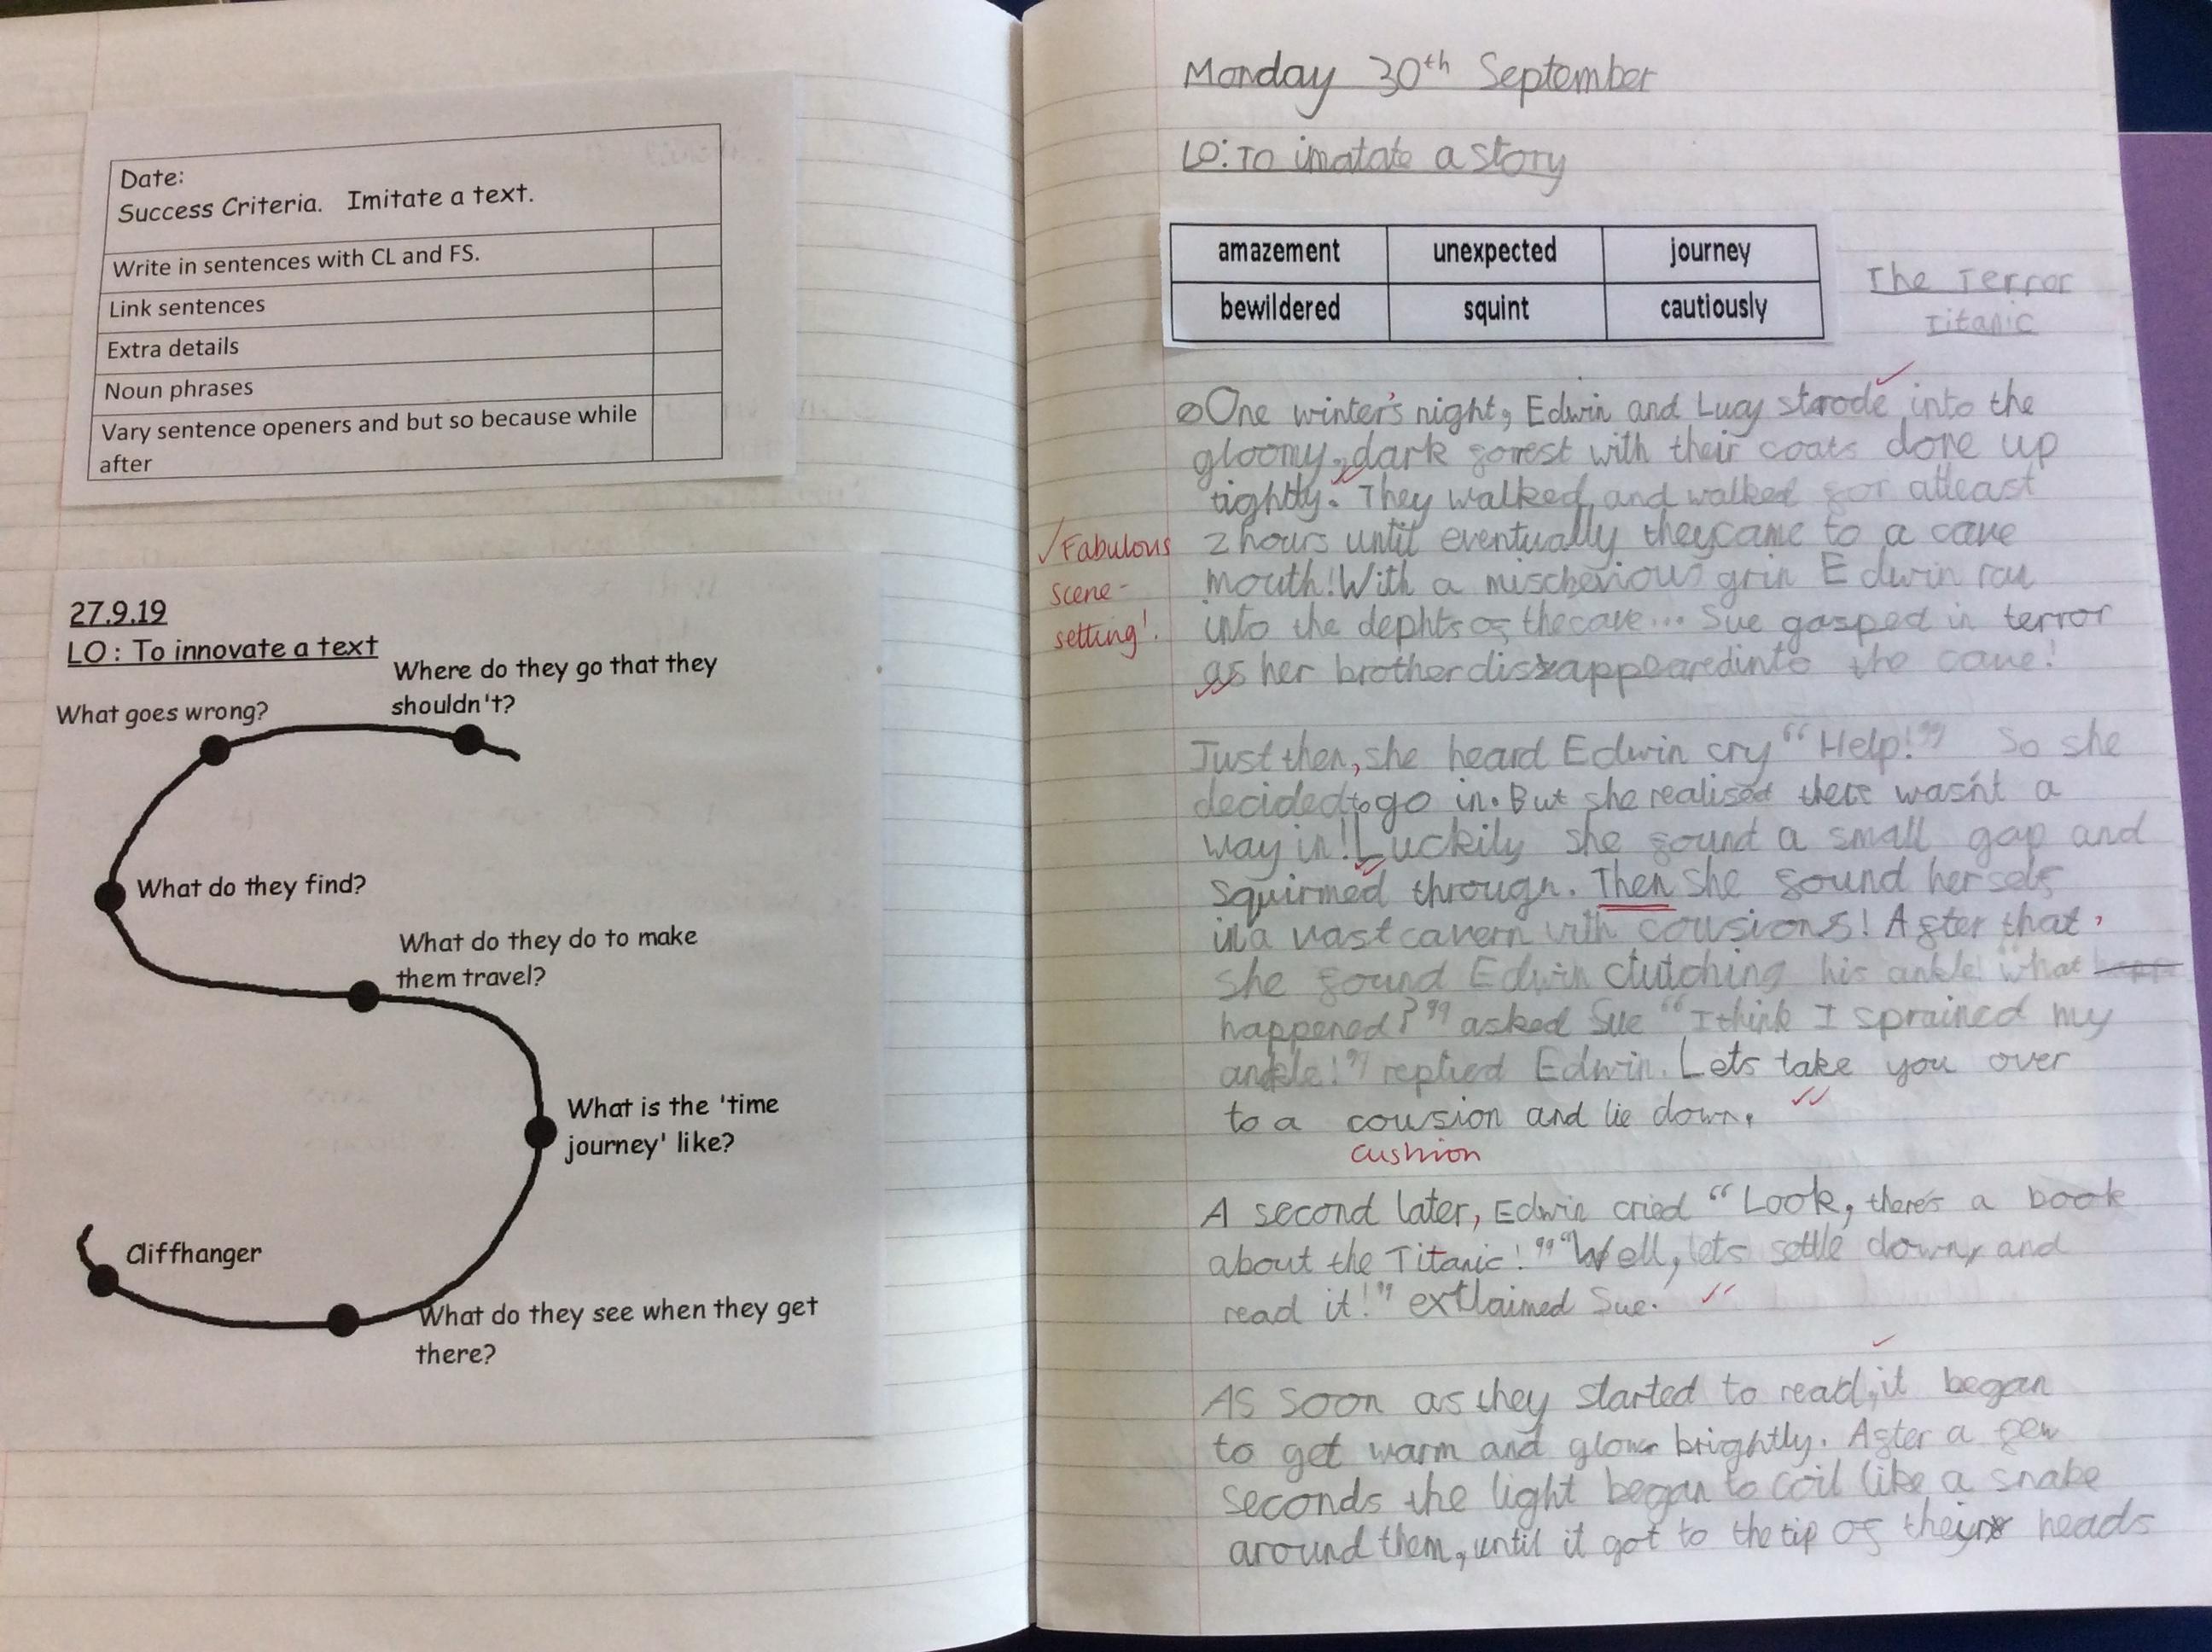 Date:
Success Criteria. Imitate a text.
Write in sentences with CL and FS.
Link sentences
Extra details
Noun phrases
Vary sentence openers and but so because while
after
27.9.19
LO : To innovate a text
Where do they go that they
shouldn't?
What goes wrong?
What do they find?
What do they do to make
them travel?
What is the 'time
journey' like?
Cliffhanger
What do they see when they get
there?
Monday 30th September
LO: To imatate a story
amazement unexpected journey
bewildered squint cautiously
The Terror
Titanic
One winter's night, Edwin and Lucy strode into the
gloomy, dark forrest with their coats done up
tightly. They walked and walked for atleast
2 hours until eventually they came to a cave
mouth! With a mischevious grin Edwin ran
into the dephts of the cave... Sue gasped in terror
as her brother dissappeared into the cave!
✓ Fabulous
scene-
setting!
Just then, she heard Edwin cry "Help!" So she
decided to go in. But she realised there wasn't a
way in! Luckily she found a small gap and
squirmed through. Then she found herself
in a vast cavern with cousions! After that,
she found Edwin clutching his ankle! "What
happened?" asked Sue "I think I sprained my
ankle!" replied Edwin. Lets take you over
to a cousion and lie down.
cushion
A second later, Edwin cried "Look, there's a book
about the Titanic!" "Well, lets settle down, and
read it!" extlaimed Sue.
As soon as they started to read, it began
to get warm and glow brightly. After a few
seconds the light began to coil like a snake
around them, until it got to the tip of their heads